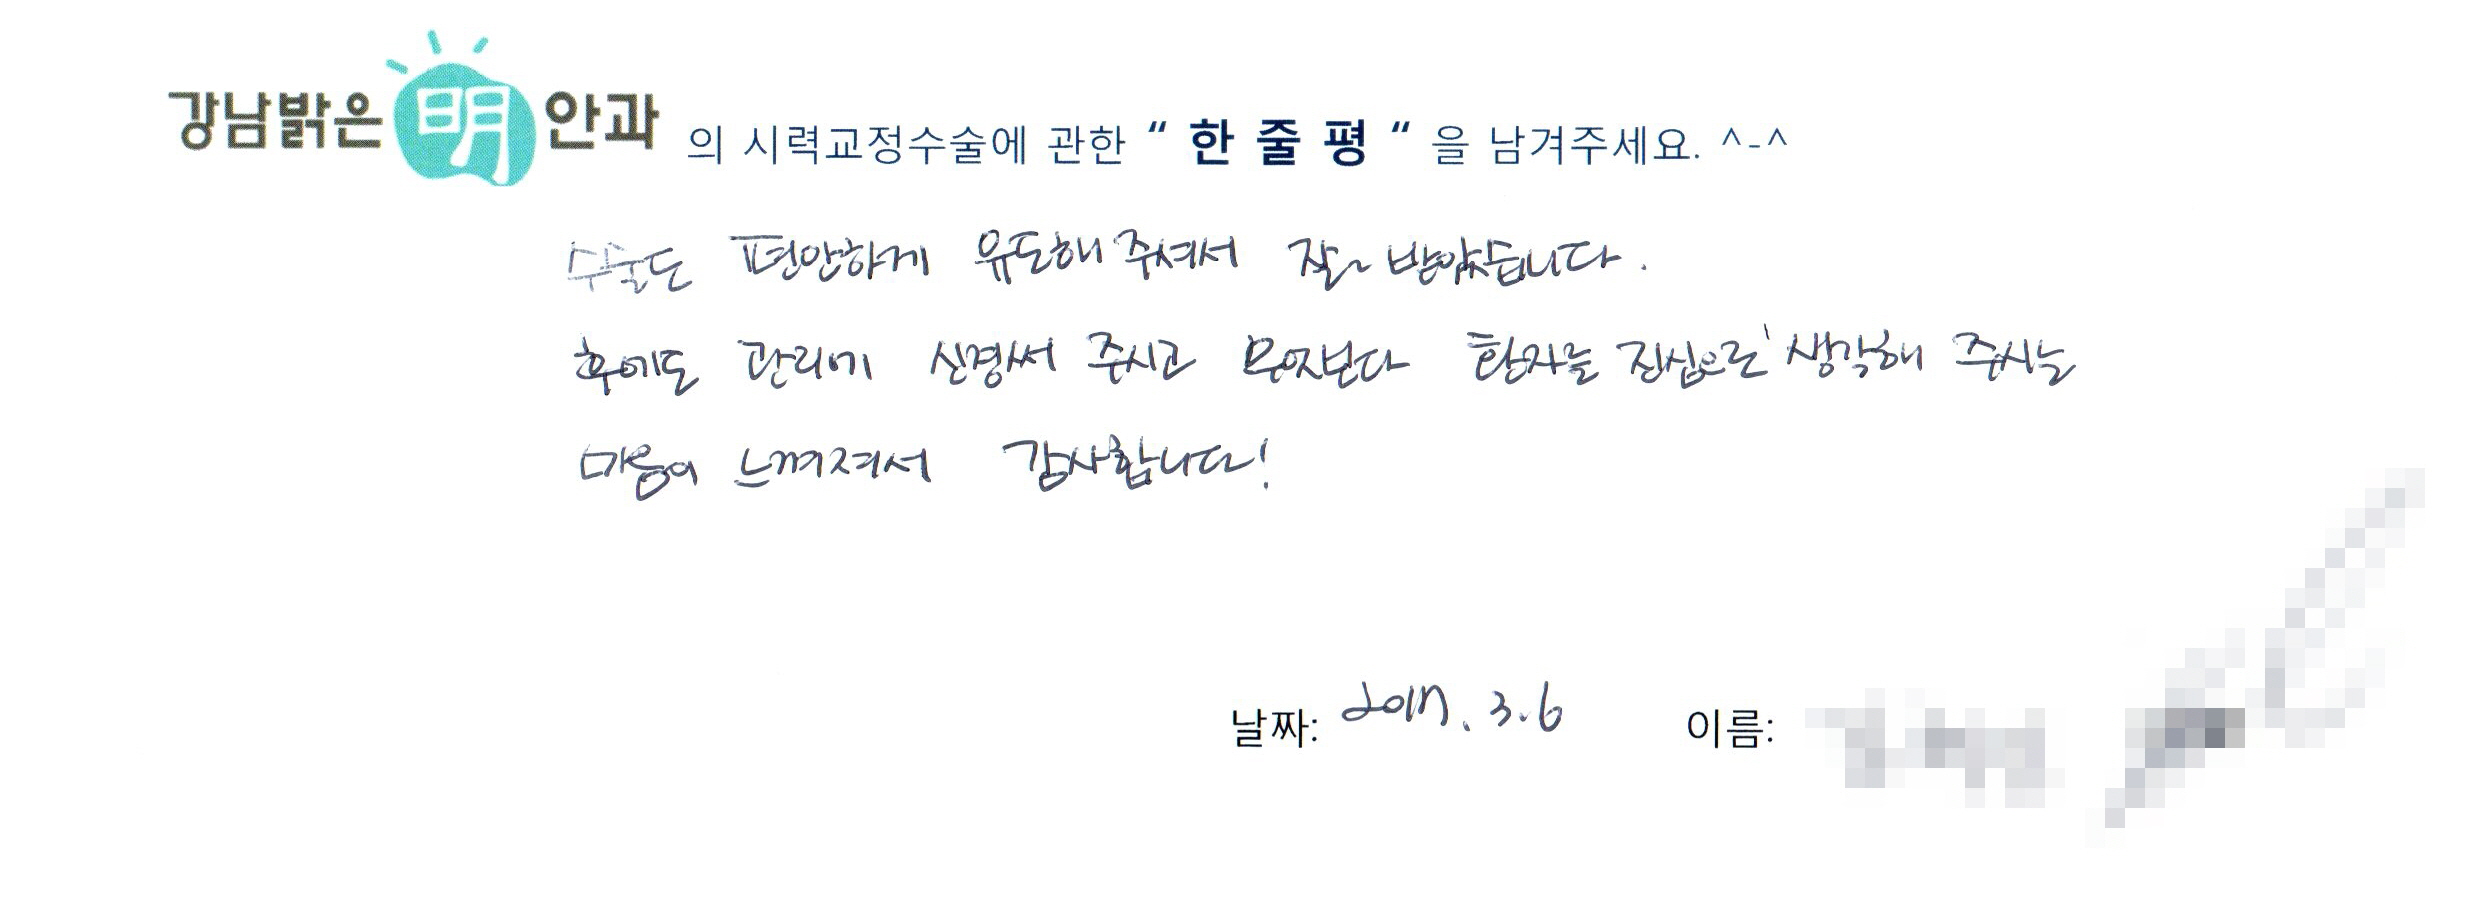 강남밝은 明 안과 의 시력교정수술에 관한 " 한 줄 평 " 을 남겨주세요. ^-^
수술도 편안하게 유도해 주셔서 잘~ 받았습니다.
후에도 관리에 신경써 주시고 무엇보다 환자를 진심으로 생각해 주시는
마음이 느껴져서 감사합니다!
날짜: 2017. 3.6 이름: